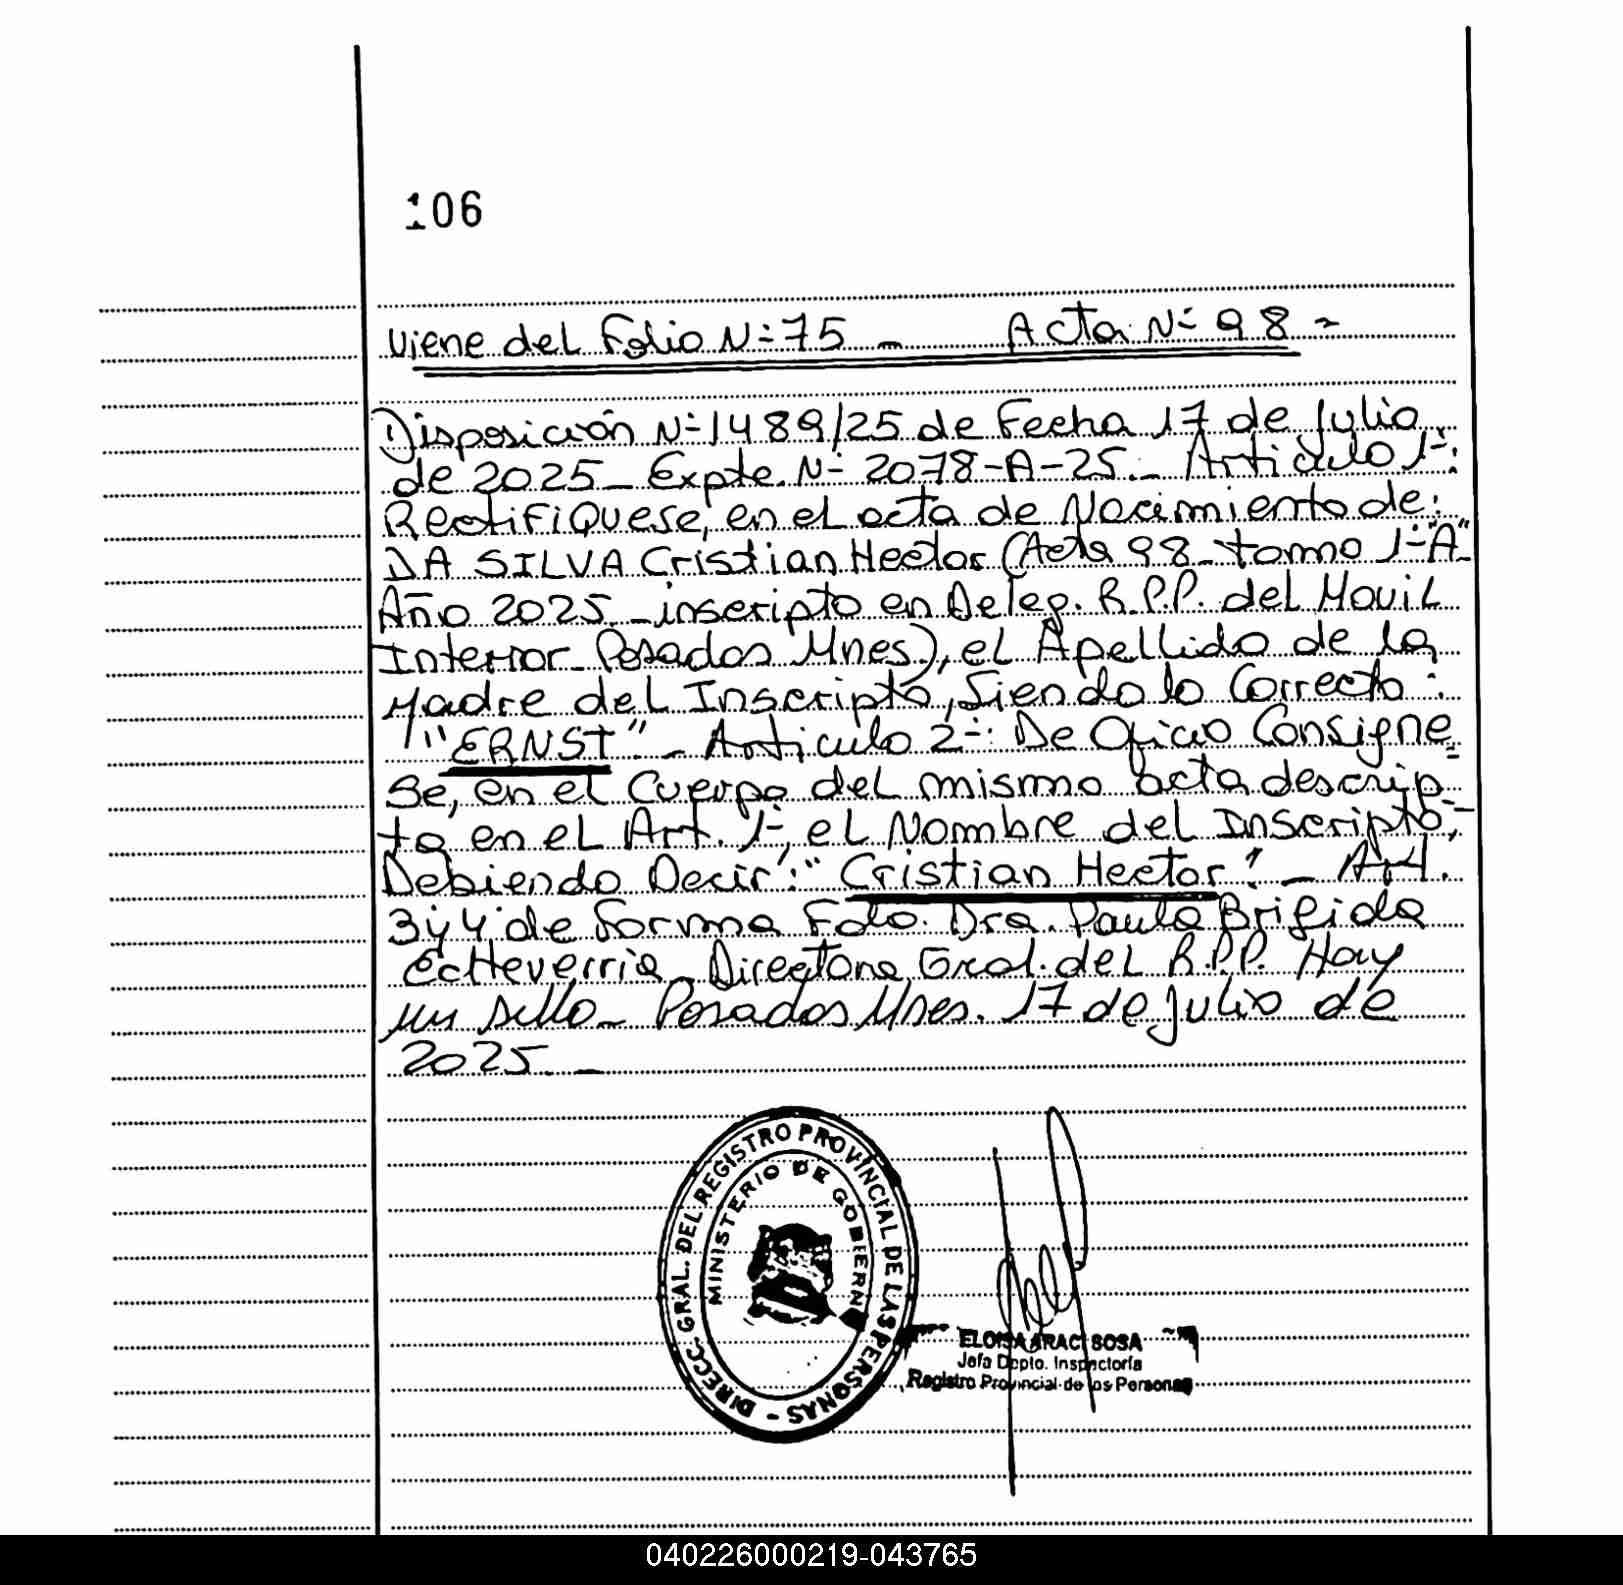 106
Viene del Folio Nº 75 - Acta Nº 98 -
Disposición Nº 1489/25 de Fecha 17 de Julio
de 2025 - Expte. Nº 2078-A-25. - Artículo 1º:
Rectifíquese, en el acta de Nacimiento de:
DA SILVA Cristian Hector (Acta 98 - tomo 1º "A"
Año 2025 - inscripto en Deleg. R.P.P. del Movil
Interior - Posadas Mnes), el Apellido de la
Madre del Inscripto, Siendo lo Correcto:
"ERNST" - Artículo 2º: De Oficio Consigne
se, en el Cuerpo del mismo acta descrip-
ta en el Art. 1º, el Nombre del Inscripto,
Debiendo Decir: "Cristian Hector" - Art.
3 y 4 de forma Fdo. Dra. Paula Brigida
Echeverria - Directora Gral. del R.P.P. Hay
un sello - Posadas Mnes. 17 de julio de
2025. -
DIRECC. GRAL. DEL REGISTRO PROVINCIAL DE LAS PERSONAS -
MINISTERIO DE GOBIERNO
ELOISA ARACI SOSA
Jefa Dpto. Inspectoría
Registro Provincial de las Personas
040226000219-043765